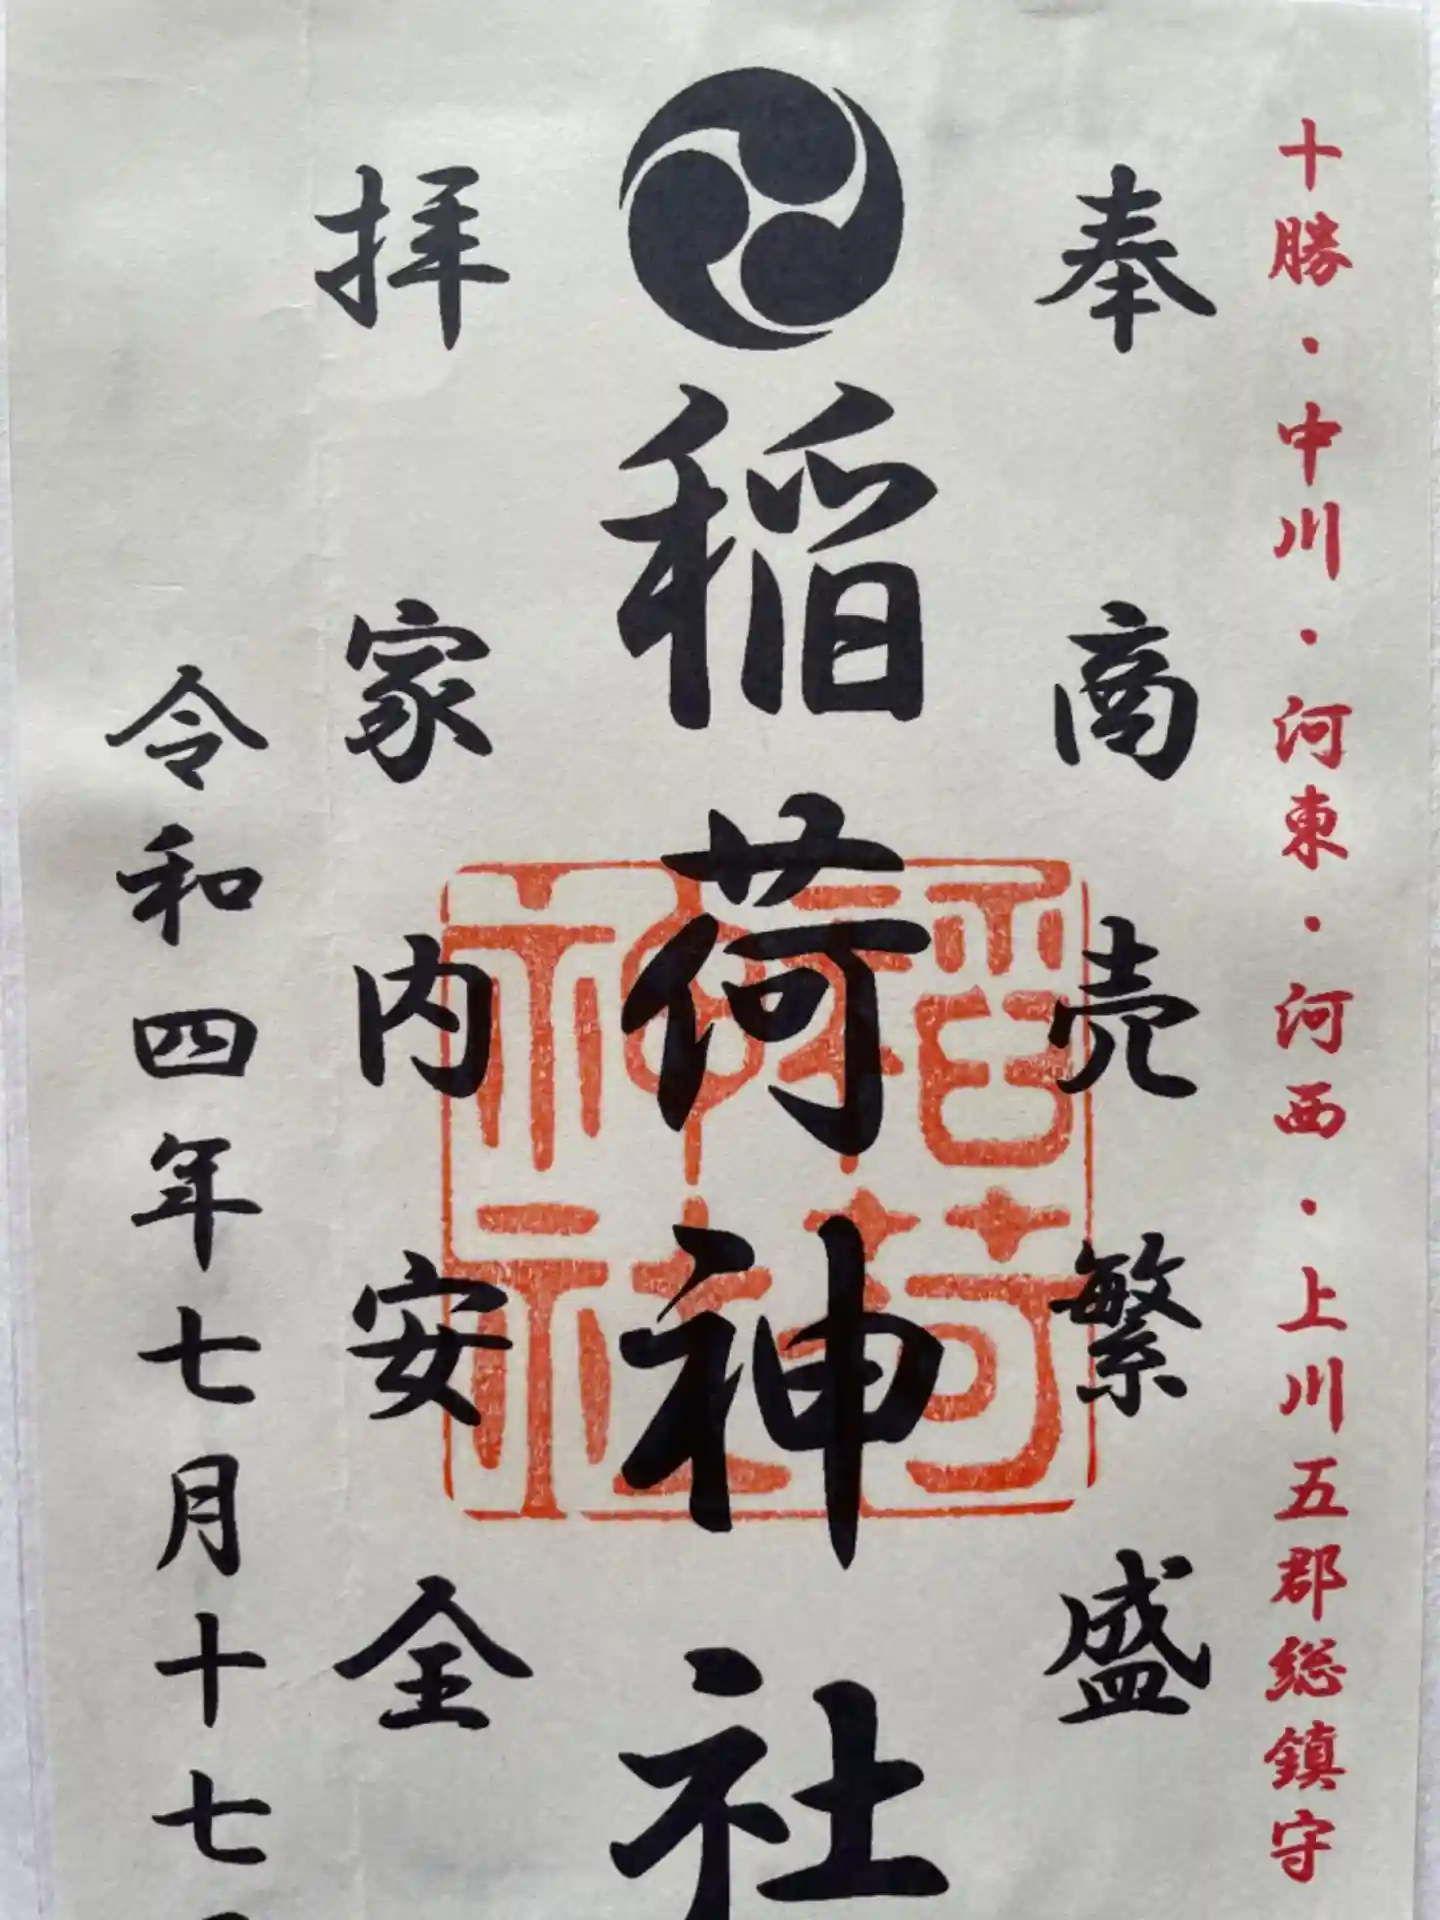 十勝・中川・河東・河西・上川五郡総鎮守
奉拝
商売繁盛
稲荷神社
家内安全
令和四年七月十七
稲荷神社